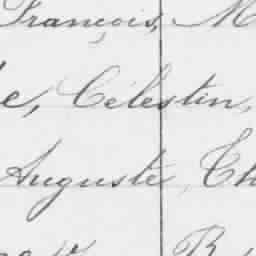 François, M
e, Célestin,
Auguste, Th